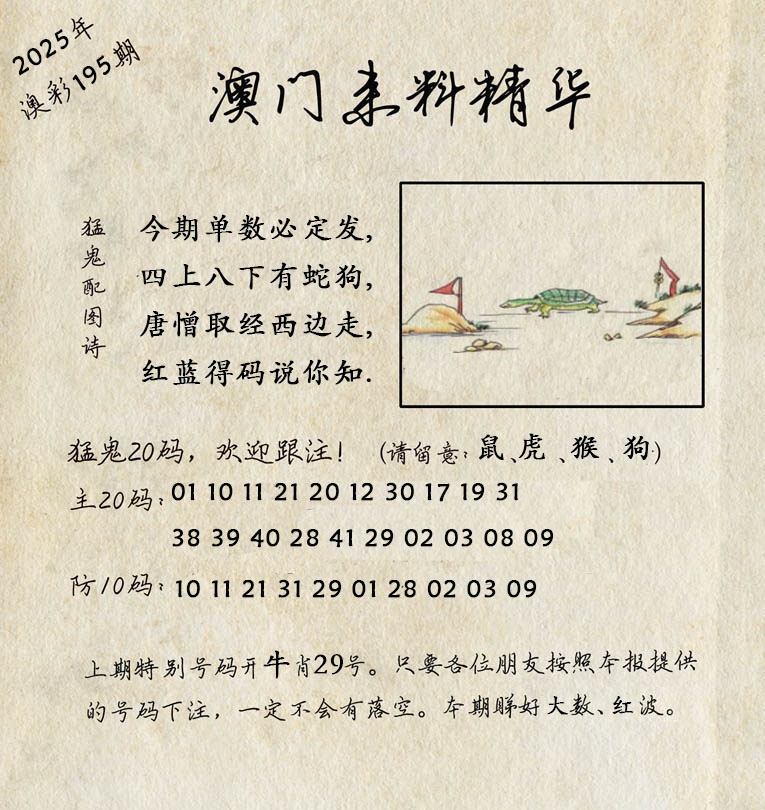 2025年
澳彩195期
澳门来料精华
猛鬼配图诗
今期单数必定发,
四上八下有蛇狗,
唐憎取经西边走,
红蓝得码说你知.
猛鬼20码，欢迎跟注！（请留意：鼠、虎、猴、狗）
主20码：01 10 11 21 20 12 30 17 19 31
38 39 40 28 41 29 02 03 08 09
防10码：10 11 21 31 29 01 28 02 03 09
上期特别号码开牛肖29号。只要各位朋友按照本报提供
的号码下注，一定不会有落空。本期睇好大数、红波。